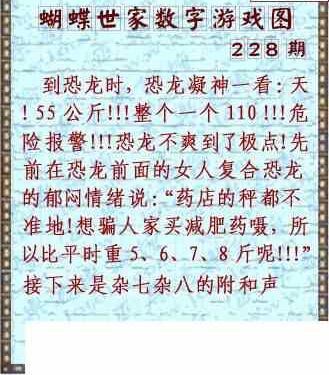 蝴蝶世家数字游戏图
228期
到恐龙时，恐龙凝神一看：天
！55公斤!!!整个一个110!!!危
险报警!!!恐龙不爽到了极点!先
前在恐龙前面的女人复合恐龙
的郁闷情绪说：“药店的秤都不
准地!想骗人家买减肥药嗫，所
以比平时重5、6、7、8斤呢!!!”
接下来是杂七杂八的附和声